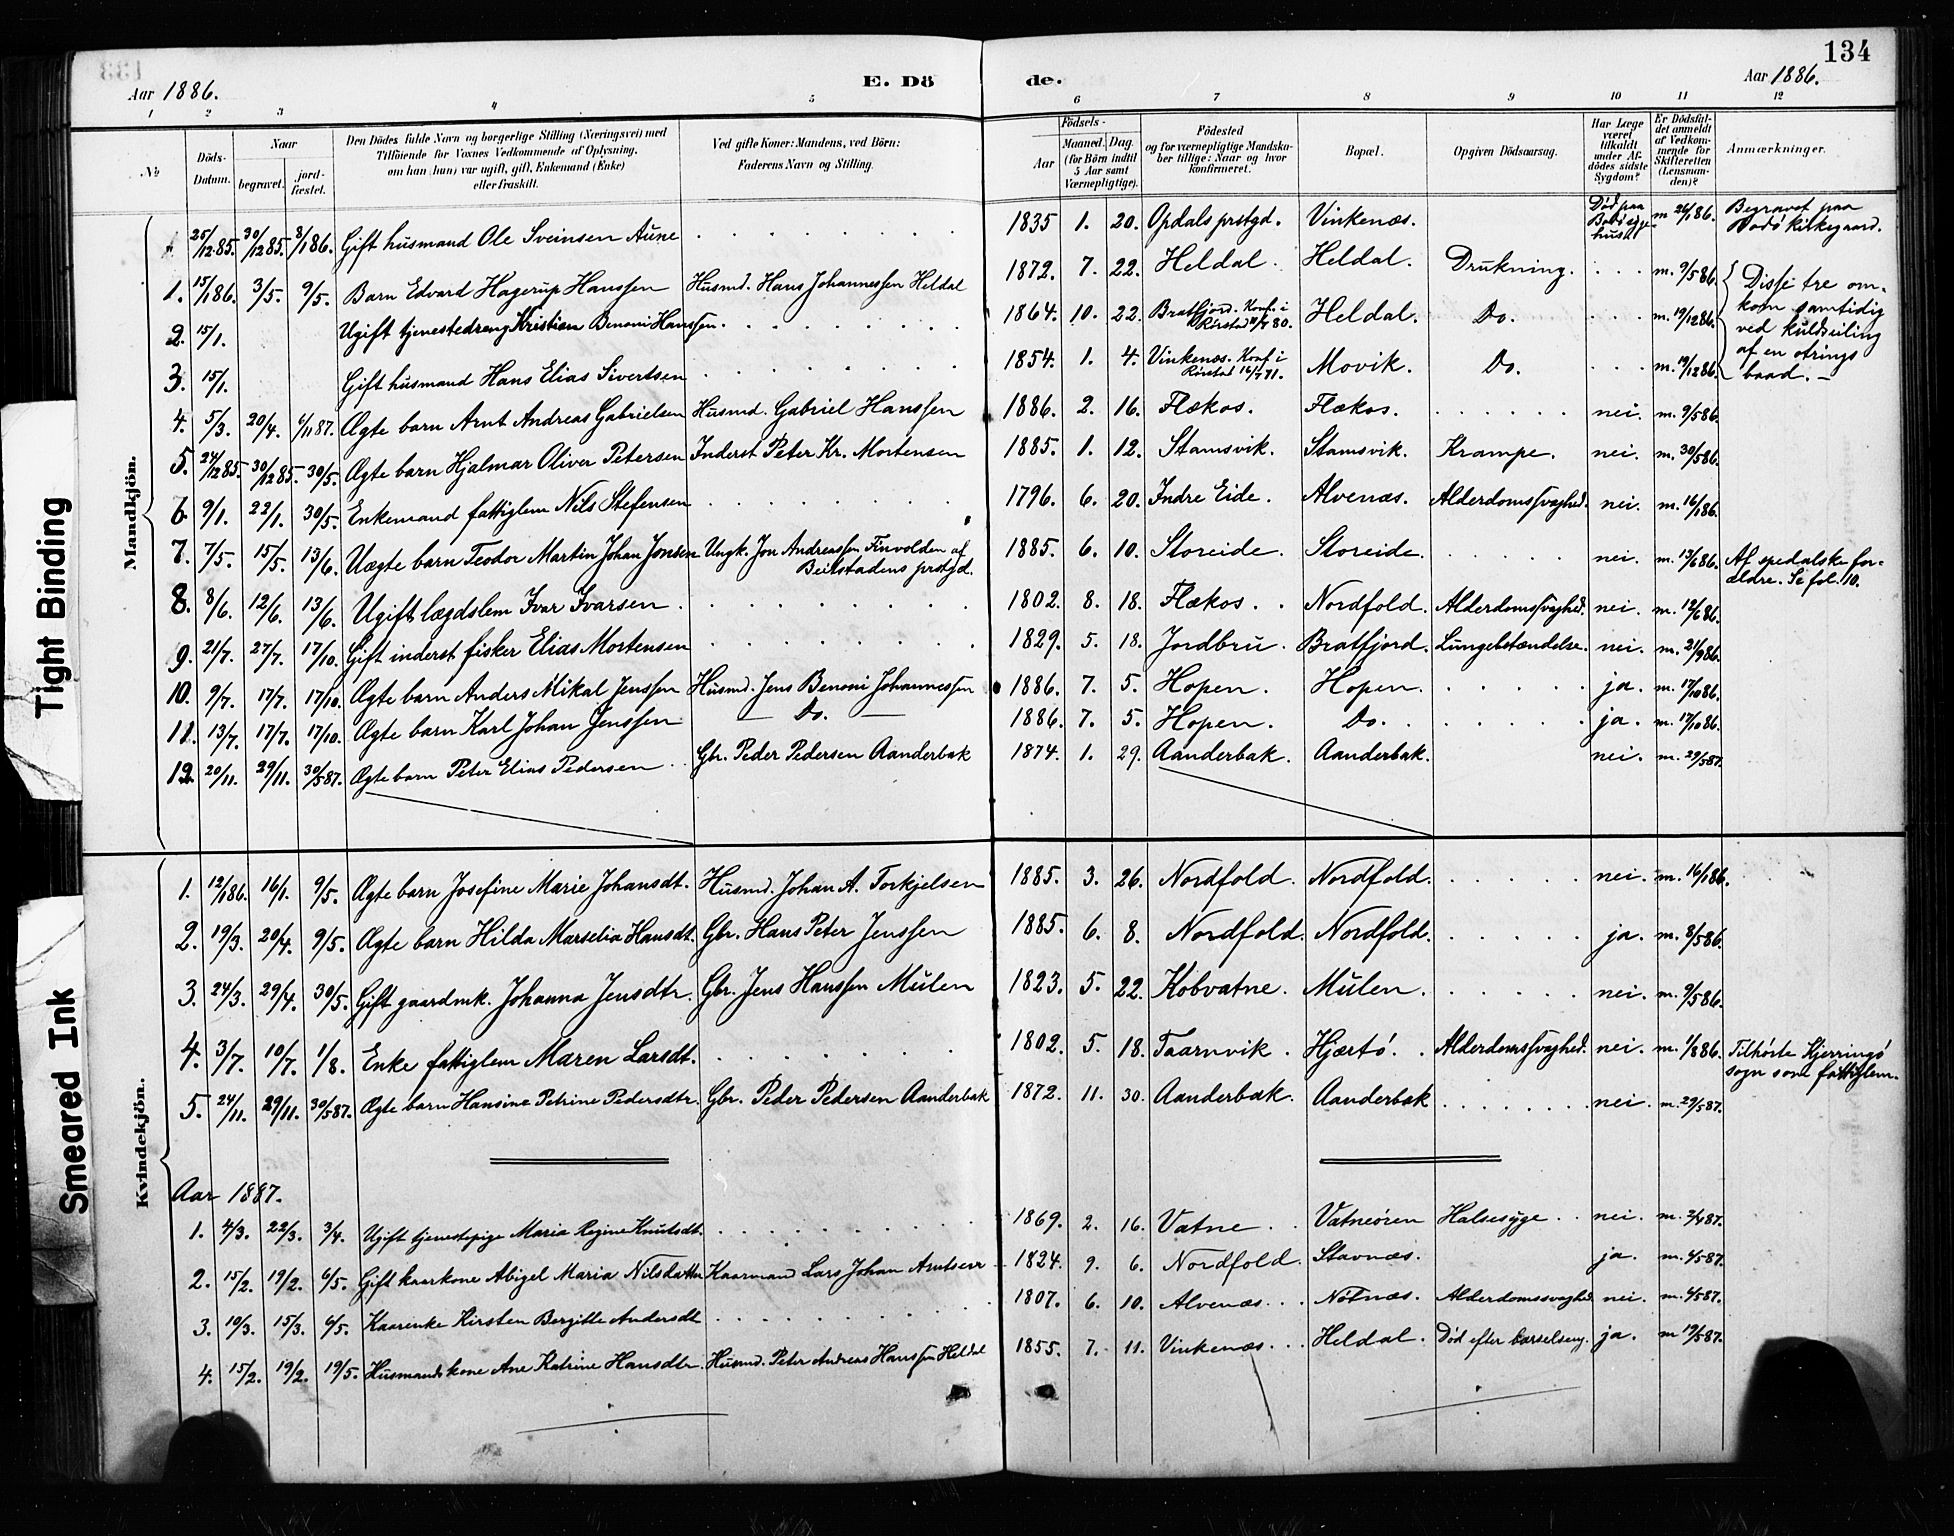 134
Aar 1886.
E. Dö de.
Aar 1886.
1 2 3 4 5 6 7 8 9 10 11 12
No
Döds-Datum.
Naar
begravet.
jord-fæstet.
Den Dödes fulde Navn og borgerlige Stilling (Næringsvei) med
Tilföiende for Voxnes Vedkommende af Oplysning,
om han (hun) var ugift, gift, Enkemand (Enke)
eller fraskilt.
Ved gifte Koner: Mandens, ved Börn:
Faderens Navn og Stilling.
Födsels-
Aar
Maaned. Dag.
(for Börn indtil
5 Aar samt
Værnepligtige).
Födested
og for værnepligtige Mandska-
ber tillige: Naar og hvor
konfirmeret.
Bopæl.
Opgiven Dödsaarsag.
Har Læge
været
tilkaldt
under Af-
dödes sidste
Sygdom?
Er Dödsfal-
det anmeldt
af Vedkom-
mende for
Skifteretten
(Lensman-
den)?
Anmærkninger.
Mandkjön.
25/12 85. 30/12 85. 8/1 86. Gift husmand Ole Sveinsen Aune 1835 1. 20. Opdals prstgd. Vinkenæs. Död paa Bodö syge-hus. m 26/1 86. Begravet paa Bodö kirkegaard.
1. 15/1 86. 3/5. 9/5. Barn Edvard Hagerup Hanssen Husmd. Hans Johannessen Heldal 1872. 7. 22. Heldal. Heldal. Drukning. m. 9/5 86. Disse tre om-
2. 15/1. Ugift tjenestedreng Kristian Benoni Hanssen. 1864. 10. 22. Bratfjord. Konf. i Rörstad 11/7 80. Heldal. Do. m. 19/12 86. kom samtidig ved kuldseiling
3. 15/1. Gift husmand Hans Elias Sivertsen 1854. 1. 4. Vinkenæs. Konf. i Rörstad 16/7 71. Movik. Do. m. 19/12 86. af en otrings baad. –
4. 5/3. 20/4. 6/11 87. Ægte barn Arnt Andreas Gabrielsen Husmd. Gabriel Hanssen 1886. 2. 16. Flækos. Flækos. nei. m. 9/5 86.
5. 24/12 85. 30/12 85. 30/5. Ægte barn Hjalmar Oliver Petersen Inderst Peter Kr. Mortensen 1885. 1. 12. Stamsvik. Stamsvik. Krampe. nei. m. 30/5 86.
6. 9/1. 22/1. 30/5. Enkemand fattiglem Nils Stefensen 1796. 6. 20. Indre Eide. Alvenæs. Alderdomssvaghed. nei. m. 16/1 86.
7. 7/5. 15/5. 13/6. Uægte barn Teodor Martin Johan Jonsen Ungk. Jon Andreassen Finvolden af Beitstadens prstgd. 1885. 6. 10. Storeide. Storeide. nei. m. 13/6 86. Af spedalske for-ældre. Se fol. 10.
8. 8/6. 12/6. 13/6. Ugift lægdslem Ivar Ivarsen. 1802. 8. 18. Flækos. Nordfold. Alderdomssvaghed. nei. m. 12/6 86.
9. 21/7. 27/7. 17/10. Gift inderst fisker Elias Mortensen 1829. 5. 18. Jordbru. Bratfjord. Lungebetændelse. nei. m. 21/9 86.
10. 9/7. 17/7. 17/10. Ægte barn Anders Mikal Jenssen Husmd. Jens Benoni Johannessen 1886. 7. 5. Hopen. Hopen. ja. m. 17/10 86.
11. 13/7. 17/7. 17/10. Ægte barn Karl Johan Jenssen — Do. — 1886. 7. 5. Hopen. Do. ja. m. 17/10 86.
12. 20/11. 29/11. 30/5 87. Ægte barn Peter Elias Pedersen Gbr. Peder Pedersen Aanderbak 1874. 1. 29. Aanderbak. Aanderbak. nei. m. 29/5 87.
Kvindekjön.
1. 12/1 86. 16/1. 9/5. Ægte barn Josefine Marie Johansdt. Husmd. Johan A. Torkjelsen 1885. 3. 26. Nordfold. Nordfold. nei. m. 16/1 86.
2. 19/3. 20/4. 9/5. Ægte barn Hilda Marselia Hansdt. Gbr. Hans Peter Jenssen 1885. 6. 8. Nordfold. Nordfold. ja. m. 8/5 86.
3. 24/3. 29/4. 30/5. Gift gaardmk. Johanna Jensdtr. Gbr. Jens Hanssen Mulen 1823. 5. 22. Kobvatne. Mulen. nei. m. 9/5 86.
4. 3/7. 10/7. 1/8. Enke fattiglem Maren Larsdt. 1802. 5. 18. Taarnvik. Hjærtö. Alderdomssvaghed. nei. m. 1/8 86. Tilhörte Kjerringö sogn som fattiglem.
5. 24/11. 29/11. 30/5 87. Ægte barn Hansine Petrine Pedersdtr. Gbr. Peder Pedersen Aanderbak 1872. 11. 30. Aanderbak. Aanderbak nei. m. 29/5 87.
Aar 1887.
1. 4/3. 22/3. 3/4. Ugift tjenestepige Maria Regine Knutsdt. 1869. 2. 16. Vatne. Vatneören Halsesyge. nei. m. 3/4 87.
2. 15/2. 19/2. 6/5. Gift kaarkone Abigel Maria Nilsdatter Kaarmand Lars Johan Arntsen 1824. 9. 6. Nordfold. Stavnæs. ja. m. 4/5 87.
3. 10/3. 15/3. 6/5. Kaarenke Kirsten Bergitte Andersdt 1807. 6. 10. Alvenæs. Nötnæs. Alderdomssvaghed nei. m. 4/5 87.
4. 15/2. 19/2. 19/5. Husmandskone Ane Katrine Hansdtr. Husmd. Peter Andreas Hanssen Heldal 1855. 7. 11. Vinkenæs. Heldal. Död efter barselseng. ja. m 19/5 87.
Tight Binding
Smeared Ink